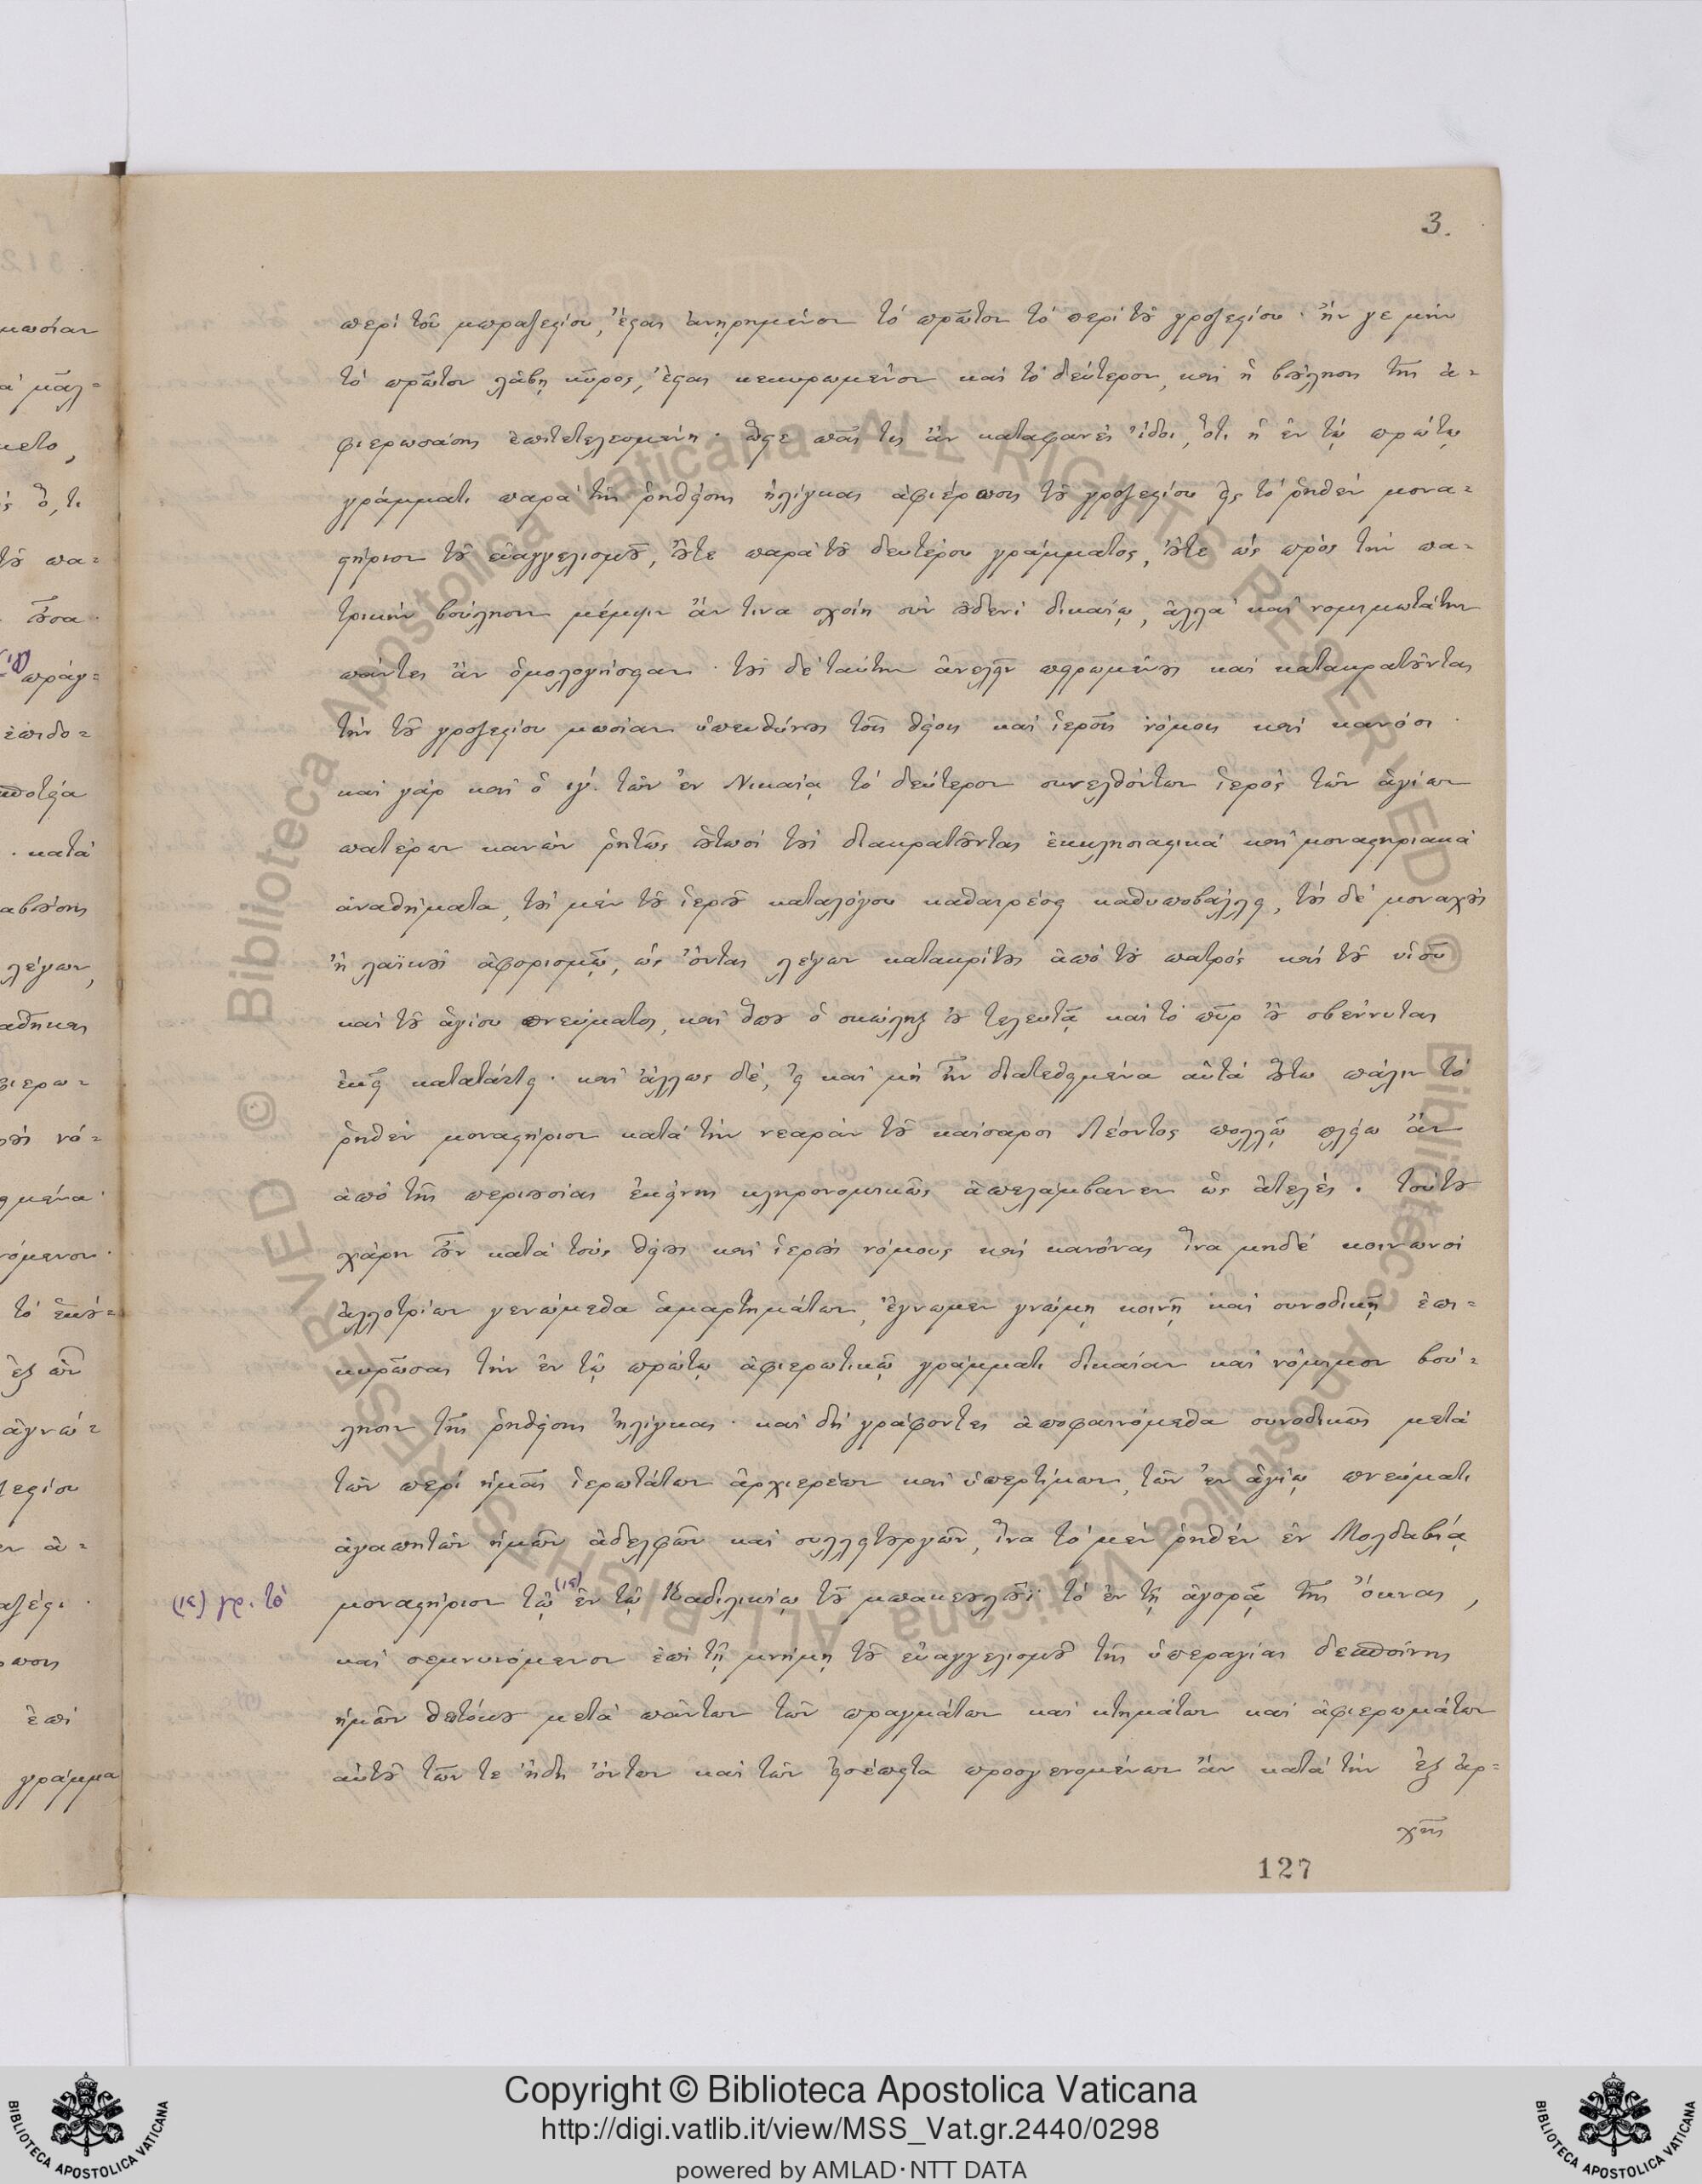 3.
περὶ τοῦ μωραζεσίου, ἔσται ἀνῃρημένον τὸ πρῶτον τὸ περὶ τοῦ γροζεσίου· ἢν γε μὴν
τὸ πρῶτον λάβῃ κῦρος, ἔσται κεκυρωμένον καὶ τὸ δεύτερον, καὶ ἡ βούλησις τῆς ἀ-
φιερωσάσης ἐπιτετελεσμένη· ὥστε πᾶς τις ἂν καταφανὲς ἴδοι, ὅτι ἡ ἐν τῷ πρώτῳ
γράμματι παρὰ τῆς ῥηθείσης ἠλίγκας ἀφιέρωσις τοῦ γροζεσίου εἰς τὸ ῥηθὲν μονα-
στήριον τοῦ εὐαγγελισμοῦ, οὔτε παρὰ τοῦ δευτέρου γράμματος, οὔτε ὡς πρὸς τὴν πα-
τρικὴν βούλησιν μέμψιν ἄν τινα σχοίη σὺν οὐδενὶ δικαίῳ, ἀλλὰ καὶ νομιμωτάτην
πάντες ἂν ὁμολογήσειαν· τοὺς δὲ ταύτην ἀνελεῖν πειρωμένους καὶ κατακρατοῦντας
τὴν τοῦ γροζεσίου μωσίαν ὑπευθύνους τοῖς θείοις καὶ ἱεροῖς νόμοις καὶ κανόσι·
καὶ γὰρ καὶ ὁ ιγ΄. τῶν ἐν Νικαίᾳ τὸ δεύτερον συνελθόντων ἱερὸς τῶν ἁγίων
πατέρων κανὼν ῥητῶς οὑτωσὶ τοὺς διακρατοῦντας ἐκκλησιαστικὰ καὶ μοναστηριακὰ
ἀναθήματα, τοὺς μὲν τοῦ ἱεροῦ καταλόγου καθαιρέσει καθυποβάλλει, τοὺς δὲ μοναχοὺς
ἢ λαϊκοὺς ἀφορισμῷ, ὡς ὄντας λέγων κατακρίτους ἀπὸ τοῦ πατρὸς καὶ τοῦ υἱοῦ
καὶ τοῦ ἁγίου πνεύματος, καὶ ὅπου ὁ σκώληξ οὐ τελευτᾷ καὶ τὸ πῦρ οὐ σβέννυται
ἐκεῖ κατατάττει· καὶ ἄλλως δὲ, εἰ καὶ μὴ ἦν διατεθειμένα αὐτὰ οὕτω πάλιν τὸ
ῥηθὲν μοναστήριον κατὰ τὴν νεαρὰν τοῦ καίσαρος Λέοντος πολλῷ πλείω ἂν
ἀπὸ τῆς περιουσίας ἐκείνης κληρονομικῶς ἀπελάμβανεν ὡς ἀτελές. τούτου
χάριν οὖν κατὰ τοὺς θείους καὶ ἱεροὺς νόμους καὶ κανόνας ἵνα μηδὲ κοινωνοὶ
ἀλλοτρίων γενώμεθα ἁμαρτημάτων, ἔγνωμεν γνώμῃ κοινῇ καὶ συνοδικῇ ἐπι-
κυρῶσαι τὴν ἐν τῷ πρώτῳ ἀφιερωτικῷ γράμματι δικαίαν καὶ νόμιμον βού-
λησιν τῆς ῥηθείσης ἠλίγκας· καὶ δὴ γράφοντες ἀποφαινόμεθα συνοδικῶς μετὰ
τῶν περὶ ἡμᾶς ἱερωτάτων ἀρχιερέων καὶ ὑπερτίμων, τῶν ἐν ἁγίῳ πνεύματι
ἀγαπητῶν ἡμῶν ἀδελφῶν καὶ συλλειτουργῶν, ἵνα τὸ μὲν ῥηθὲν ἐν Μολδαβίᾳ
(ιε) γρ. τὸ
μοναστήριον τῷ (ιε) ἐν τῷ Καδιλικίῳ τοῦ μπακεολοῦϊ τὸ ἐν τῇ ἀγορᾷ τῆς ὄκνας,
καὶ σεμνυνόμενον ἐπὶ τῇ μνήμῃ τοῦ εὐαγγελισμοῦ τῆς ὑπεραγίας δεσποίνης
ἡμῶν θεοτόκου μετὰ πάντων τῶν πραγμάτων καὶ κτημάτων καὶ ἀφιερωμάτων
αὐτοῦ τῶν τε ἤδη ὄντων καὶ τῶν εἰσέπειτα προσγενομένων ἂν κατὰ τὴν ἐξ ἀρ-
χῆς
127
Copyright © Biblioteca Apostolica Vaticana
http://digi.vatlib.it/view/MSS_Vat.gr.2440/0298
powered by AMLAD·NTT DATA